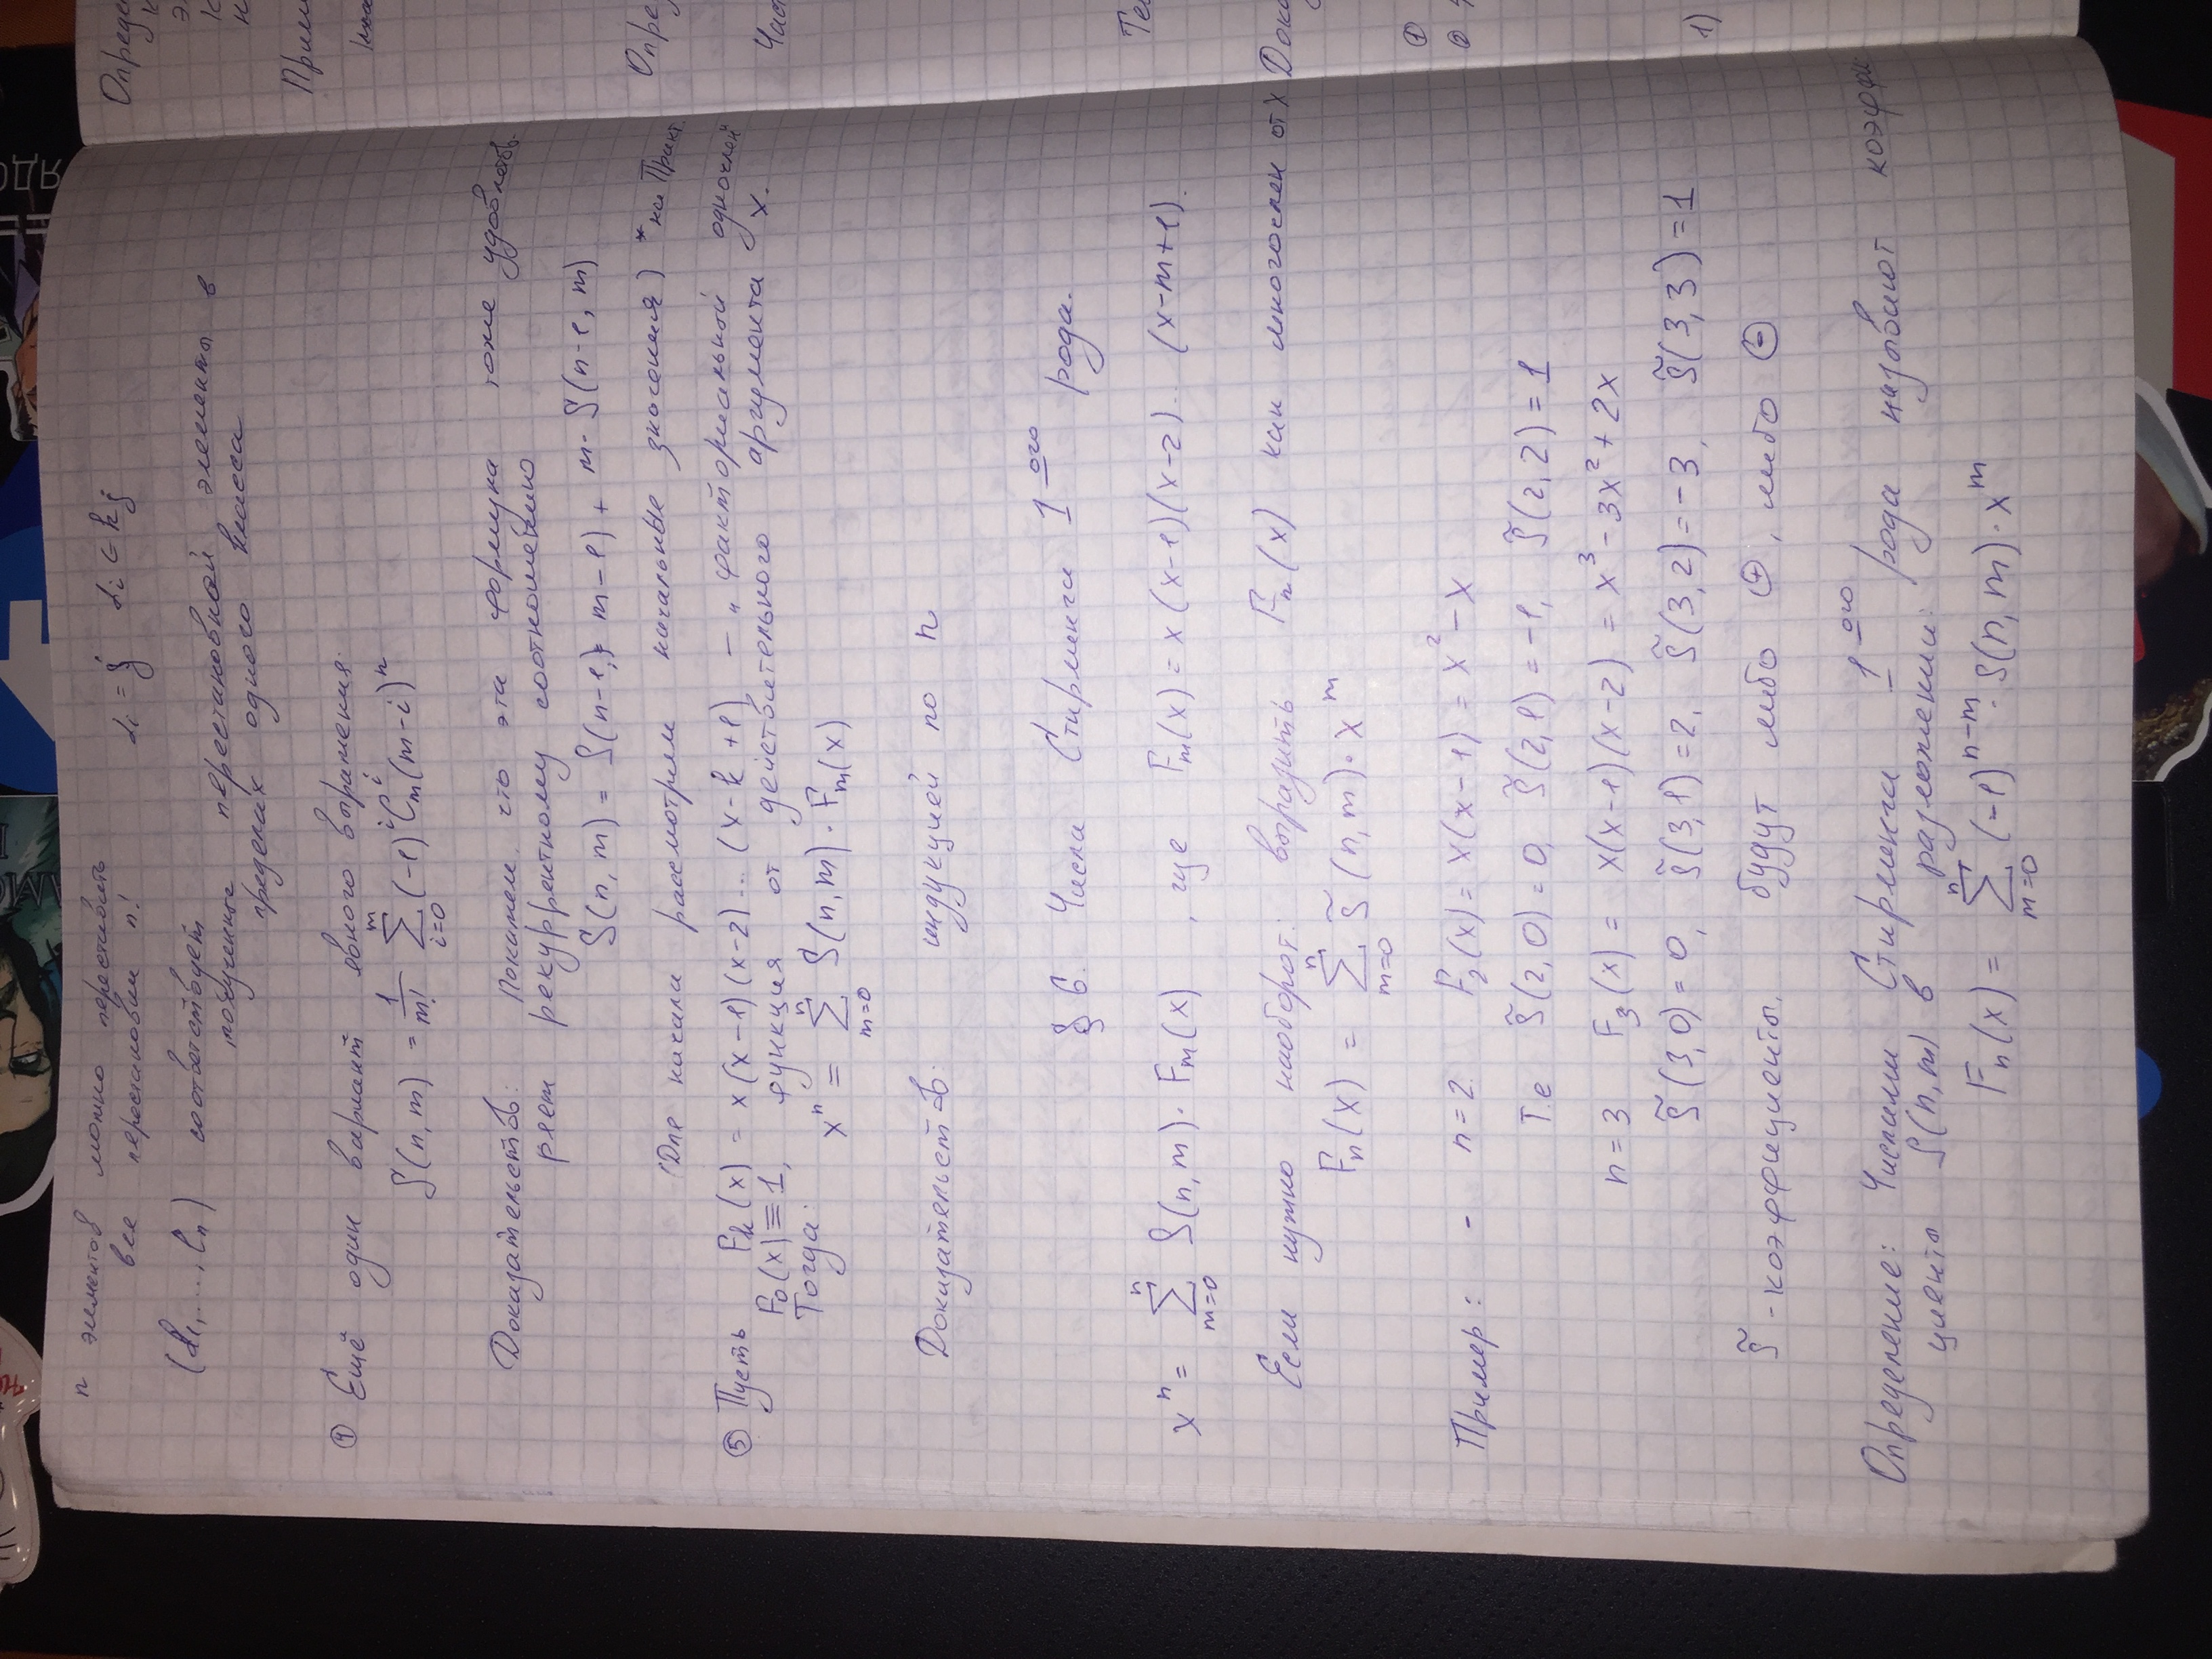 n элементов можно переставить
все перестановки n!
αi = j αi ∈ kj
(α1,...., αn) соответствует
полученные перестановкой элементы в
пределах одного класса
④ Ещё один вариант явного выражения:
S(n,m) = 1/m! ∑_{i=0}^{m} (-1)^i C_m^i (m-i)^n
Доказательство: Покажем, что эта формула тоже удовлетво-
ряет рекуррентному соотношению
S(n,m) = S(n-1, m-1) + m· S(n-1, m)
(Для начала рассмотрим начальные значения) *на Практ.
⑤ Пусть Fk(x) = x(x-1)(x-2)... (x-k+1) - „факториальный одночлен
F0(x) ≡ 1, функция от действительного аргумента x.
Тогда:
x^n = ∑_{m=0}^{n} S(n,m) · Fm(x)
Доказательство: индукцией по n
§ 6. Числа Стирлинга 1ого рода.
x^n = ∑_{m=0}^{n} S(n,m) · Fm(x) , где Fm(x) = x(x-1)(x-2)... (x-m+1).
Если нужно наоборот: выразить Fn(x) как многослен от x
Fn(x) = ∑_{m=0}^{n} s̃(n,m) · x^m
Пример: - n=2. F2(x) = x(x-1) = x² - x
Т.е s̃(2,0) = 0, s̃(2,1) = -1, s̃(2,2) = 1
n=3 F3(x) = x(x-1)(x-2) = x³ - 3x² + 2x
s̃(3,0) = 0, s̃(3,1) = 2, s̃(3,2) = -3, s̃(3,3) = 1
s̃ - коэффициенты. будут либо ⊕, либо ⊖
Определение: Числами Стирлинга 1ого рода называют коэффи
циенты s(n,m) в разложении:
Fn(x) = ∑_{m=0}^{n} (-1)^{n-m} · s(n,m) · x^m
Опреде
Прим
Опре
Част
Те
Дока
①
②
1)